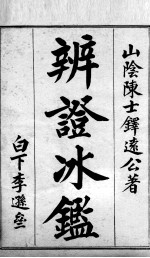 山陰陳士鐸遠公著
辨證冰鑑
白下李遜叄